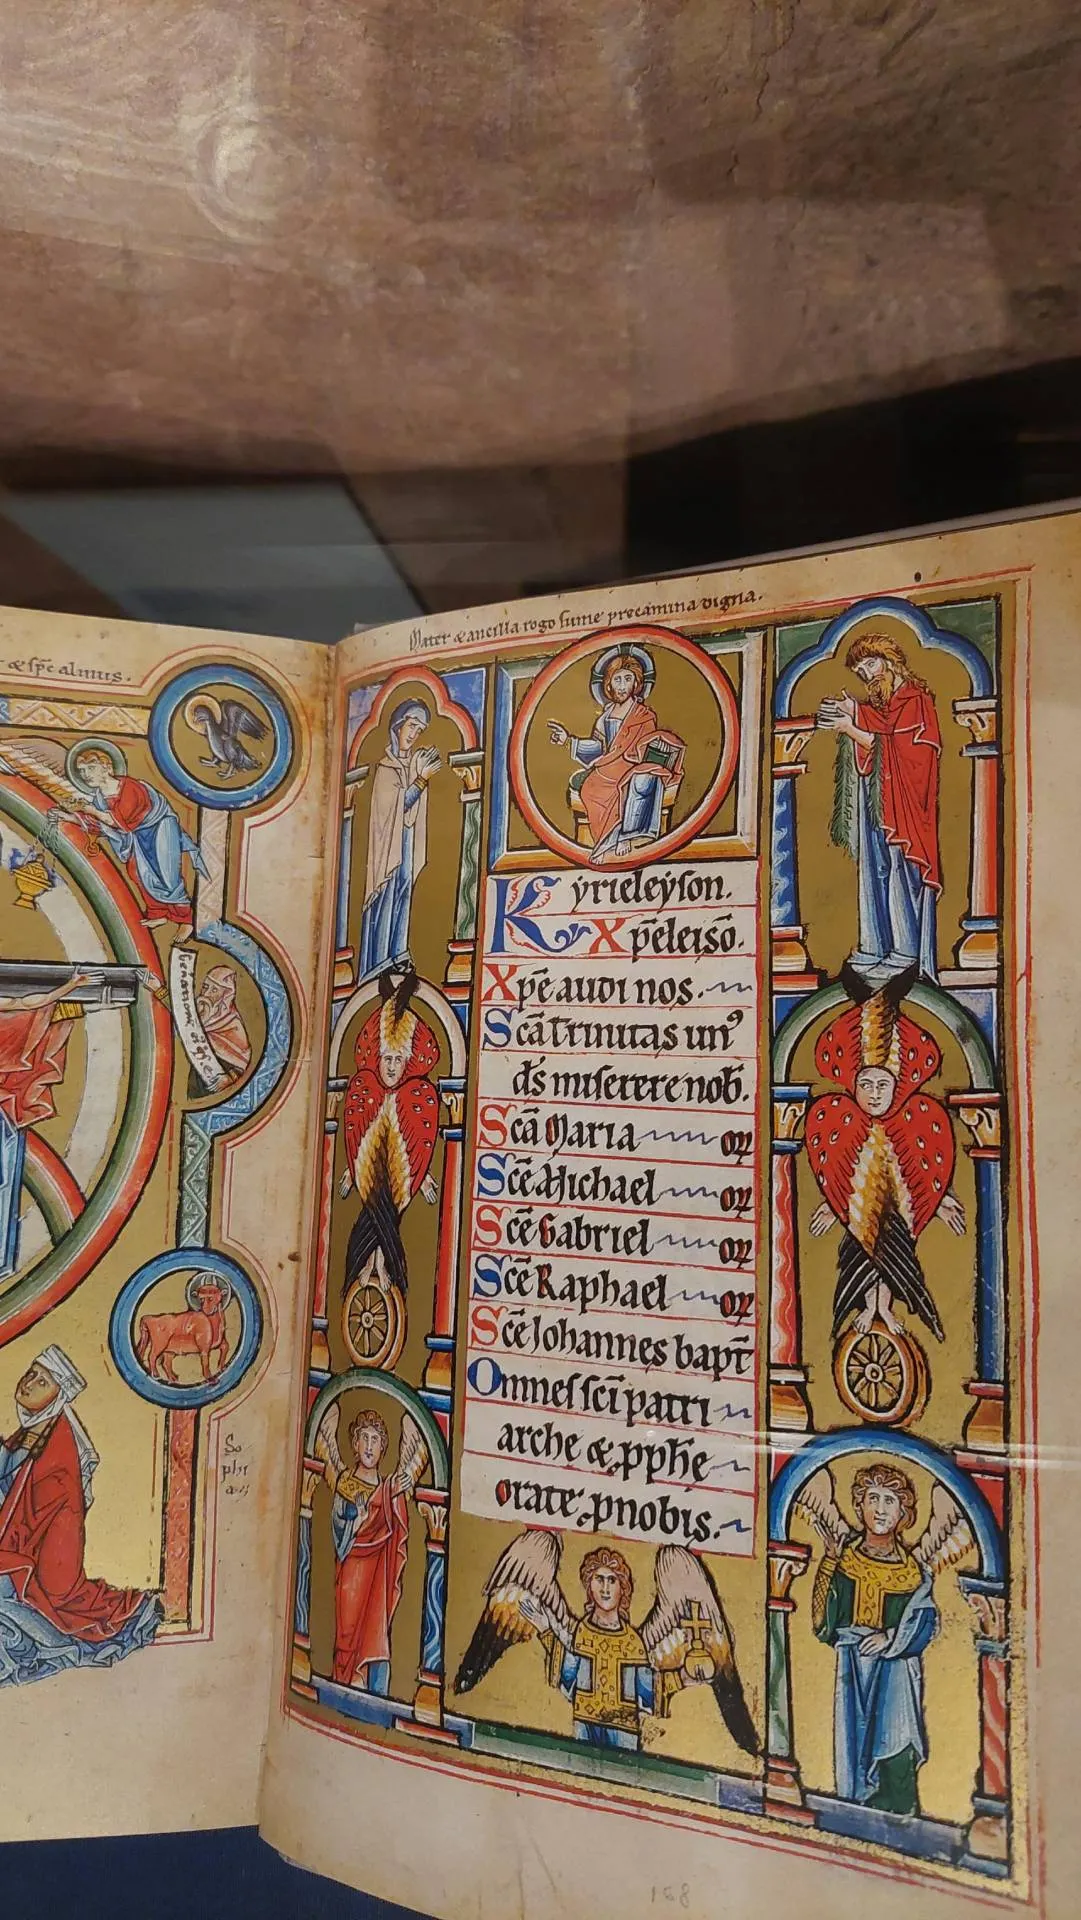 & sp̅c almus.
Mater & ancilla rogo sume precamina digna.
Kyrieleyson.
Xp̅eleiso̅.
Xp̅e audi nos.
Sc̅a trinitas unꝰ
d̅s miserere nob̅.
Sc̅a Maria or̅
Sc̅e Michael or̅
Sc̅e Gabriel or̅
Sc̅e Raphael or̅
Sc̅e Johannes bapt̅
Omnes sc̅i patri
arche & ꝓph̅e
orate ꝓ nobis.
So
phi
a
168